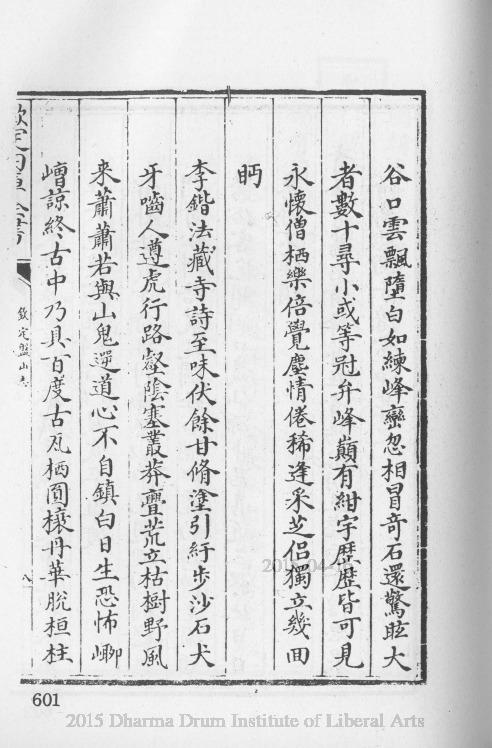 谷口雲飄墮白如練峰巒忽相冒奇石還驚眩大
者數十尋小或等冠弁峰巔有紺宇歷歷皆可見
永懷僧栖樂倍覺塵情倦稀逢采芝侶獨立幾回
眄
李鍇法藏寺詩至味伏餘甘脩塗引紆步沙石犬
牙嚙人遵虎行路壑陰塞叢莽亹荒立枯樹野風
來蕭蕭若與山鬼遻道心不自鎮白日生恐怖嘟
嶒諒終古中乃具百度古瓦栖圓檺丹華脫桓柱
欽定四庫全書
欽定盤山志
八
601
2015 Dharma Drum Institute of Liberal Arts